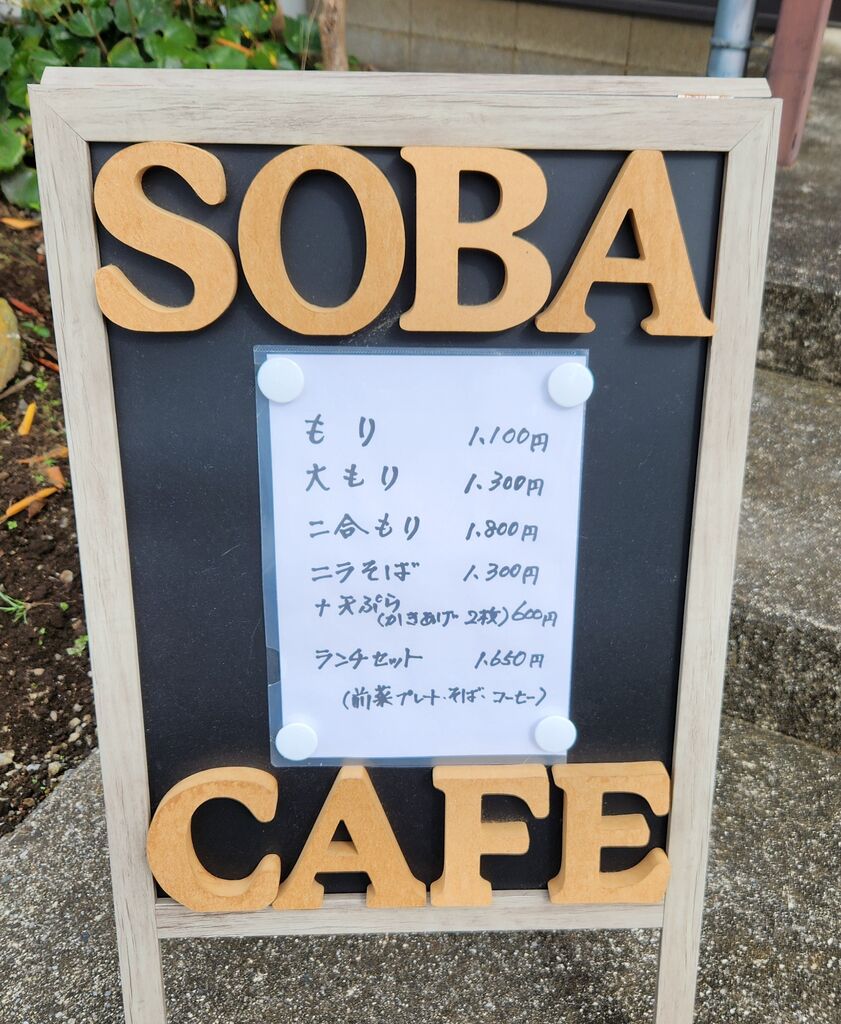 SOBA
もり 1.100円
大もり 1.300円
二合もり 1.800円
ニラそば 1.300円
+天ぷら(かきあげ 2枚)600円
ランチセット 1.650円
(前菜プレート.そば.コーヒー)
CAFE